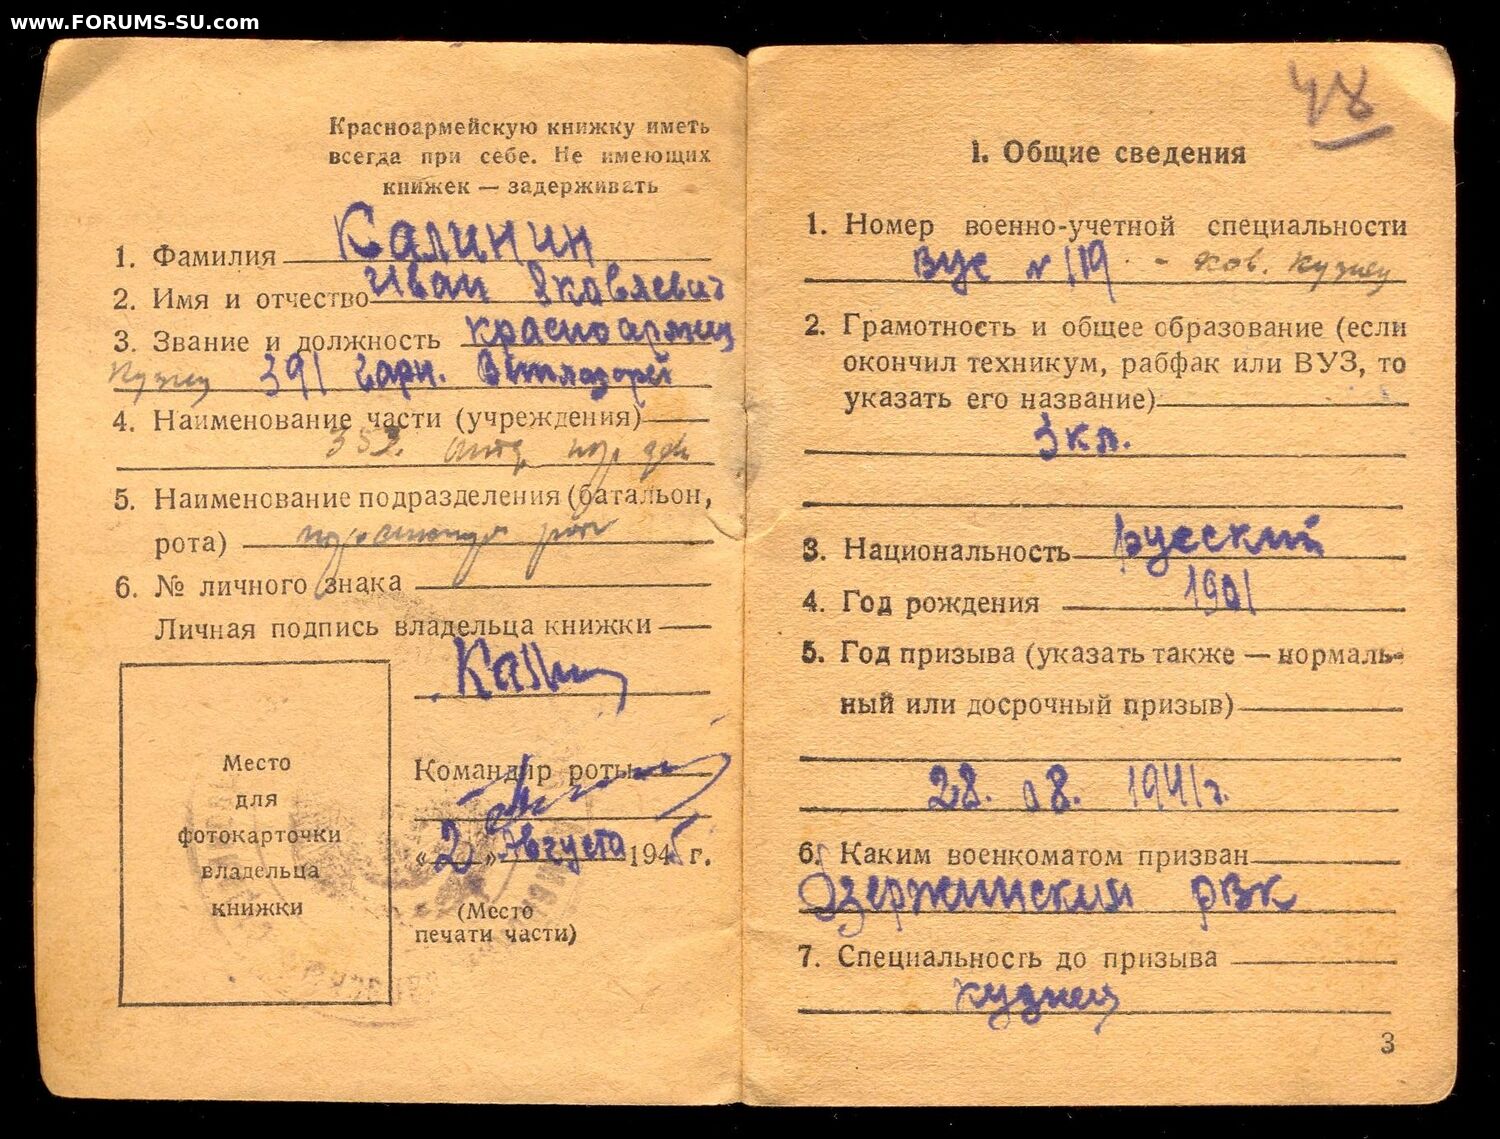 www.FORUMS-SU.com
Красноармейскую книжку иметь
всегда при себе. Не имеющих
книжек — задерживать
1. Фамилия Калинин
2. Имя и отчество Иван Яковлевич
3. Звание и должность красноармеец
Кузнец 391 гарн. Ветлазарет
4. Наименование части (учреждения)
353
5. Наименование подразделения (батальон,
рота)
6. № личного знака
Личная подпись владельца книжки
Калин
Место
для
фотокарточки
владельца
книжки
Командир роты
«2» Августа 1945 г.
(Место
печати части)
48
I. Общие сведения
1. Номер военно-учетной специальности
ВУС № 119 - ков. кузнец
2. Грамотность и общее образование (если
окончил техникум, рабфак или ВУЗ, то
указать его название)
3 кл.
3. Национальность русский
4. Год рождения 1901
5. Год призыва (указать также — нормаль-
ный или досрочный призыв)
28. 08. 1941 г.
6. Каким военкоматом призван
Дзержинский РВК
7. Специальность до призыва
кузнец
3